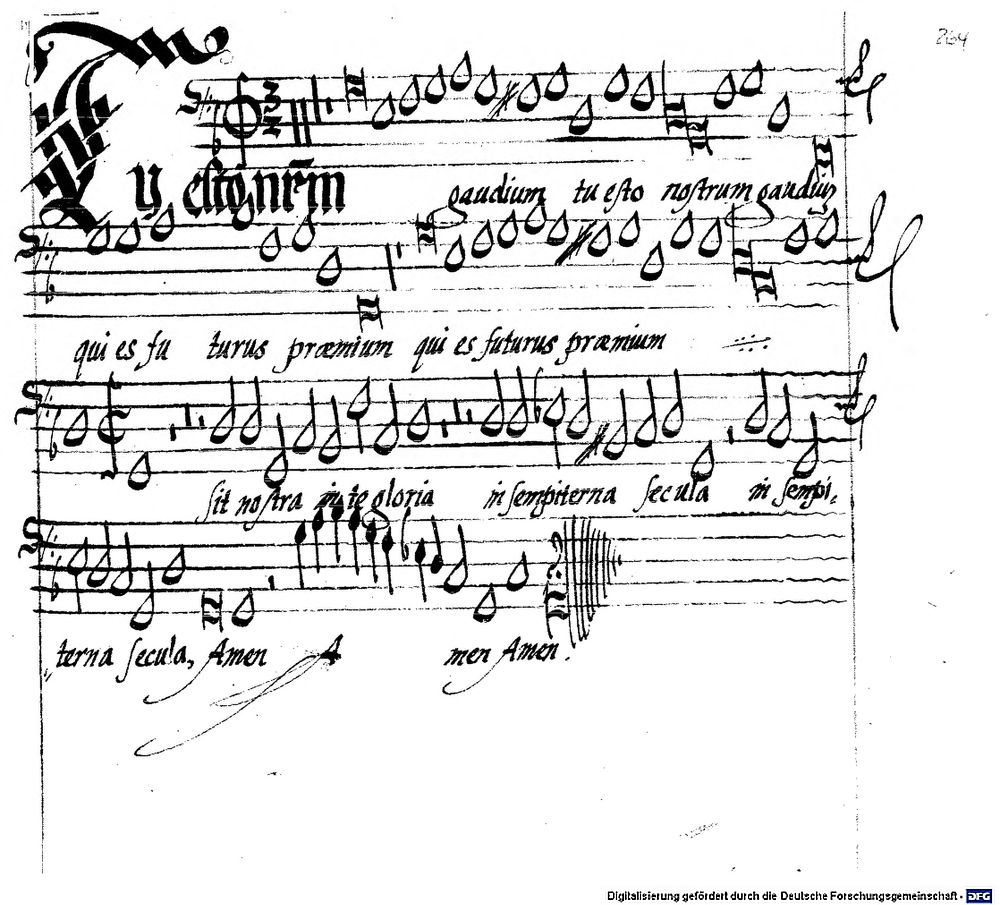 264
Ty esto nrm̄ gaudium tu esto nostrum gaudiũ
qui es fu turus præmium qui es futurus præmium
sit nostra in te gloria in sempiterna secula in sempi,
,,terna secula, Amen A men Amen.
Digitalisierung gefördert durch die Deutsche Forschungsgemeinschaft - DFG